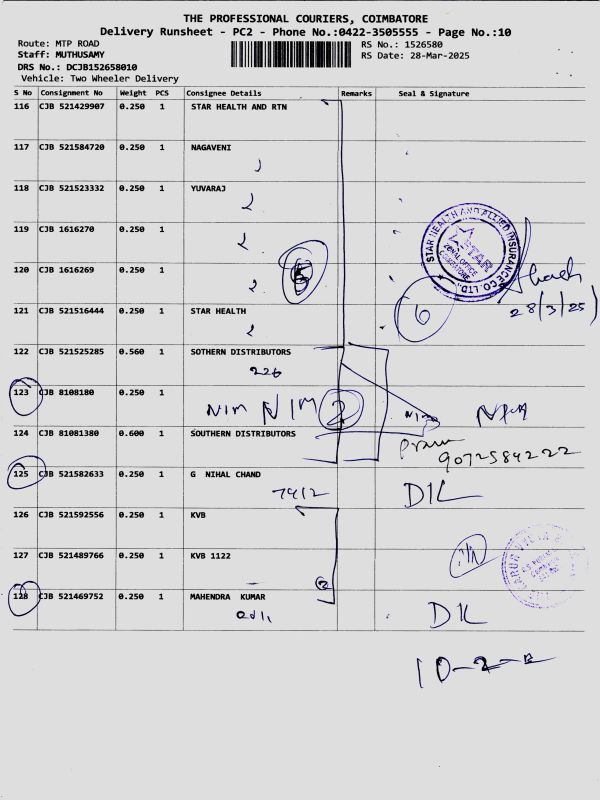 THE PROFESSIONAL COURIERS, COIMBATORE
Delivery Runsheet - PC2 - Phone No.:0422-3505555 - Page No.:10
Route: MTP ROAD RS No.: 1526580
Staff: MUTHUSAMY RS Date: 28-Mar-2025
DRS No.: DCJB152658010
Vehicle: Two Wheeler Delivery
S No Consignment No Weight PCS Consignee Details Remarks Seal & Signature
116 CJB 521429907 0.250 1 STAR HEALTH AND RTN
117 CJB 521584720 0.250 1 NAGAVENI
118 CJB 521523332 0.250 1 YUVARAJ
119 CJB 1616270 0.250 1
STAR HEALTH AND ALLIED INSURANCE CO. LTD.
STAR
ZONAL OFFICE
COIMBATORE
120 CJB 1616269 0.250 1
6
28/3/25
121 CJB 521516444 0.250 1 STAR HEALTH
122 CJB 521525285 0.560 1 SOTHERN DISTRIBUTORS
226
123 CJB 8108180 0.250 1
NIM NIM 2
124 CJB 81081380 0.600 1 SOUTHERN DISTRIBUTORS
9072584222
125 CJB 521582633 0.250 1 G NIHAL CHAND
7412 DIL
126 CJB 521592556 0.250 1 KVB
127 CJB 521489766 0.250 1 KVB 1122
2
128 CJB 521469752 0.250 1 MAHENDRA KUMAR
DIL
10-2-